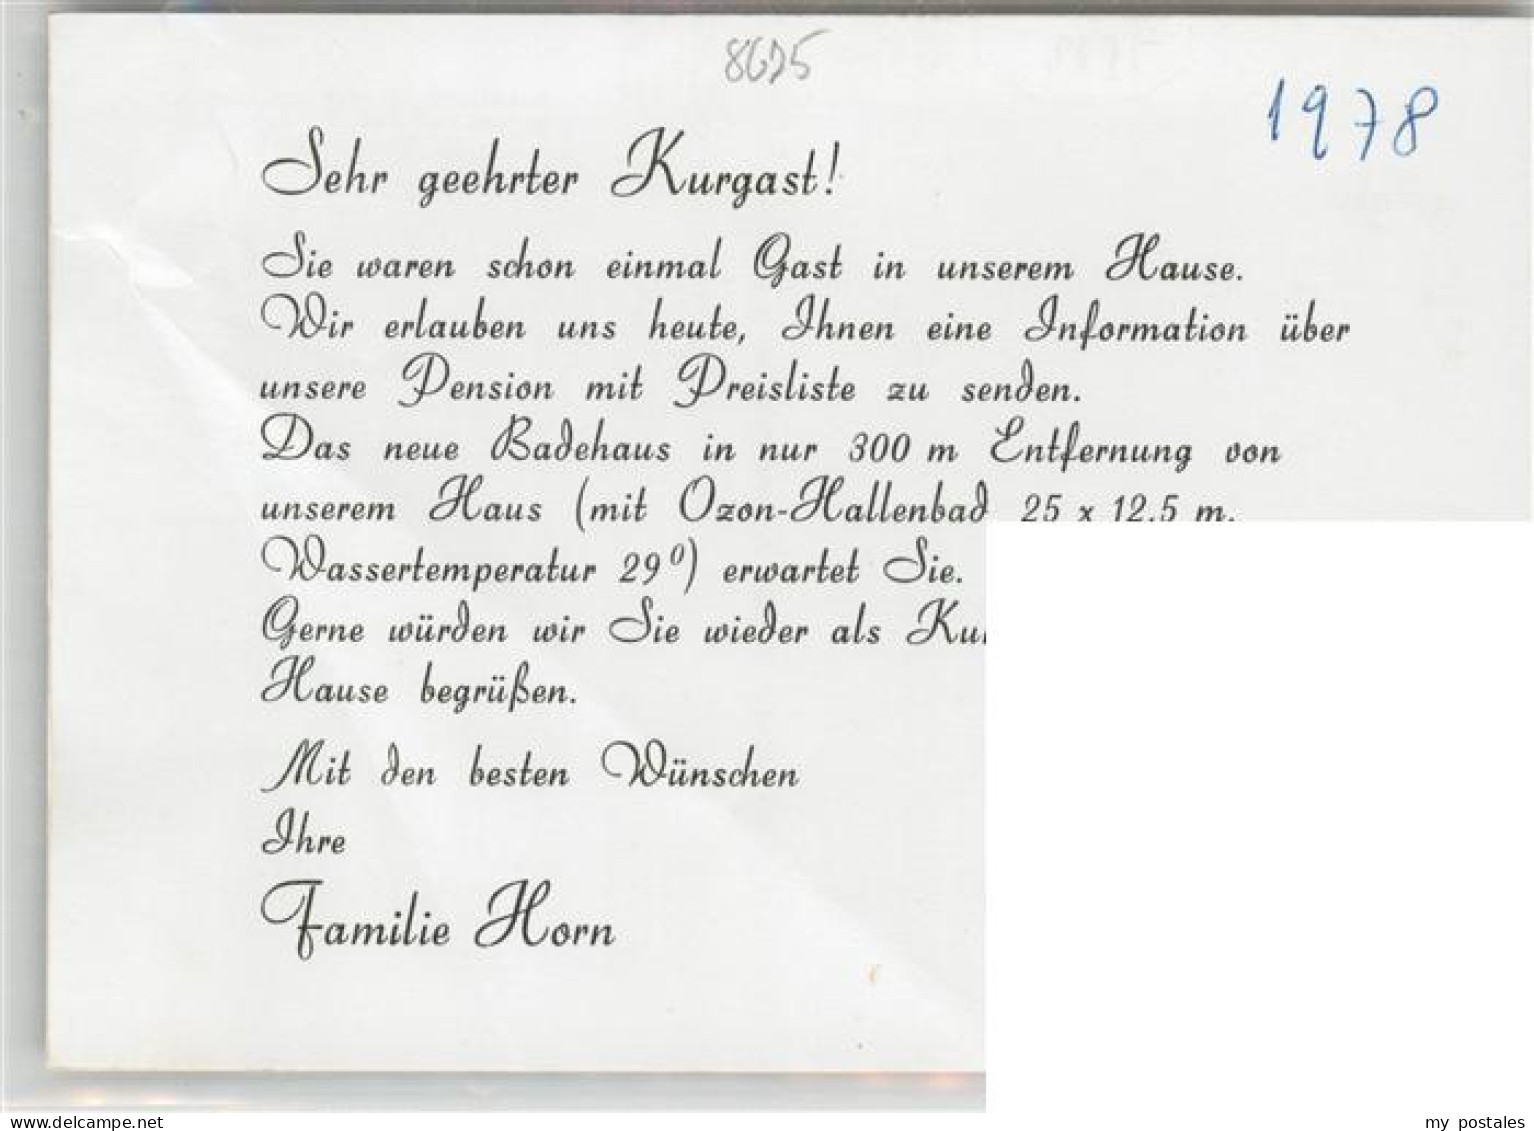 8675
1978
Sehr geehrter Kurgast!
Sie waren schon einmal Gast in unserem Hause.
Wir erlauben uns heute, Ihnen eine Information über
unsere Pension mit Preisliste zu senden.
Das neue Badehaus in nur 300 m Entfernung von
unserem Haus (mit Ozon-Hallenbad 25 x 12,5 m,
Wassertemperatur 29⁰) erwartet Sie.
Gerne würden wir Sie wieder als
Hause begrüßen.
Mit den besten Wünschen
Ihre
Familie Horn
www.delcampe.net
my_postales